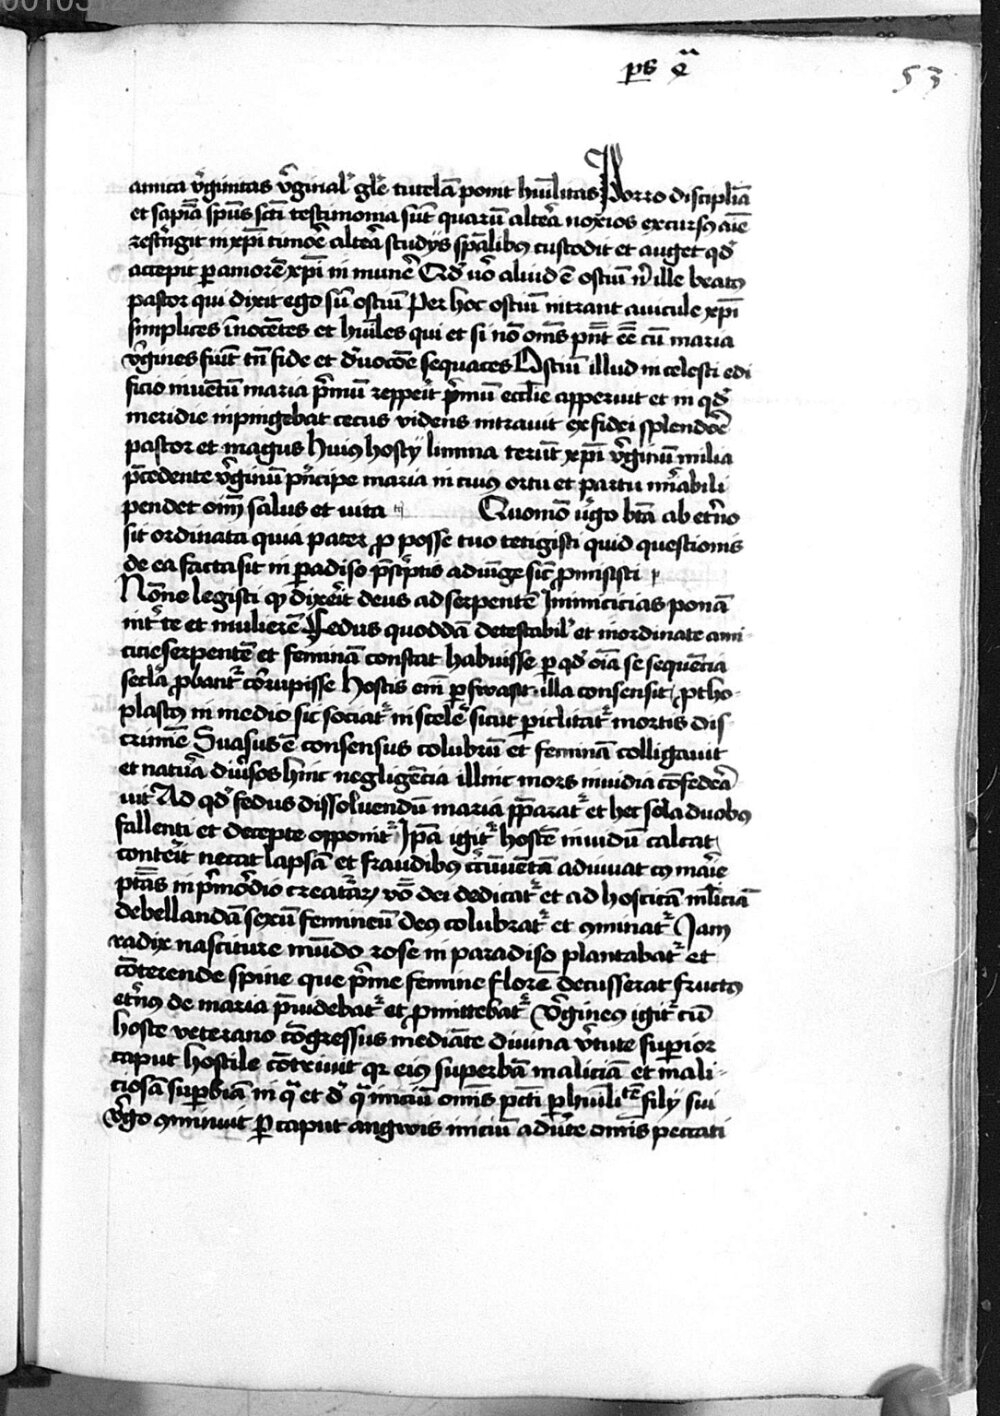 ps qͣ
53
amica v̾ginitas v̾ginal' gl'e tutelā ponit hūilitas Porro disciplīa
et sapīa spūs scti testimonia sūt quarū alteā noxios excursꝯ aīe
rest̾ngit in xp̄i timoē alteā studijs sp̄alibꝯ custodit et auget qd̾
accepit ꝑ amorē xp̄i in mune̾ Qd̾ v̾o aliud ē ostiū n̄ ille beatꝯ
pastor qui dixit ego sū ostiū Per hoc ostiū intrant auicule xp̄i
simplices īnocētes et hūiles qui et si nō om̄s pn̄t eē cū maria
v̾gines fiūt tn̄ fide et d̾uocōe sequaces Ostiū illud in celesti edi
ficio inuētū maria p̾mū reppeit p̾mū eccl'ie apperuit et in qd̾
meridie inpingebat cecus videns intrauit ex fidei splendoē
pastor et magus huiꝯ hostij limina teriūt xp̄i v̾ginū milia
p̄cedente v̾ginū p̾ncipe maria in cuiꝯ ortu et partu mi̾abili
pendet oīm salus et vita Quomō v̾go btā ab et̾no
sit ordinata quia pater ꝓ posse tuo tetigisti quid questionis
de ea facta sit in ꝑadiso p̄sc̾ptis adiunge sic̄ ꝓmisisti
Nōne legisti qꝫ dixeit deus ad serpentē Inimicicias ponā
int̾ te et mulierē Fedus quoddā detestabil' et inordinate ami
citie serpentē et feminā constat habuisse ꝑ qd̾ oīa se sequēcia
secl'a ꝓbant̾ cor̄upisse hostis em̄ ꝑswasit illa consensit ꝓtho
plastꝯ in medio sic sociat̾ in scele̾ sicut ꝑiclitat̾ mortis dis
crimīe Suasus ē consensus colubrū et feminā colligauit
et natu̾a diu̾sos hinc negligēcia illinc mors inuidia cōfedeā
uit Ad qd̾ fedus dissoluendū maria p̄parat̾ et hec sola duobꝯ
fallenti et decepte opponit̾ Ip̄a igit̾ hostē inuidū calcat
conteit necat lapsā et fraudibꝯ circ̄ūētā adiuuat cꝯ ma̾ie
ptās in p̾mo̾dio creat̾aꝝ v̄o dei dedicat̾ et ad hosticā mliciā
debellandā sexū femineū deꝯ colubrat̾ et ꝯminat̾ Jam
radix nasciture mūdo rose in paradiso plantabat̾ et
cōterende spine que p̾me femine florē decusserat fructꝯ
et̾nꝯ de maria p̄uidebat̾ et ꝓmittebat̾ V̾gineꝯ igit̾ cū
hoste veterano cōgressus mediāte diuina v̾tute suꝑior
caput hostile cōtriuit qr eiꝯ superbā maliciā et mali
ciosā suꝑbiā in qͣ et d̾ qͣ iniciū om̄is pcti ꝑ hūilitē filij sui
v̾go ꝯminuit Per caput angwis iniciū adu̾te om̄is peccati